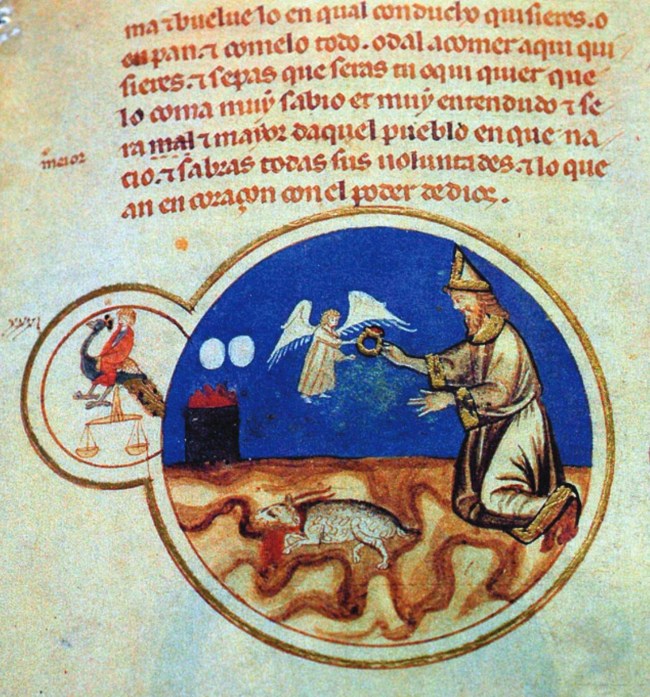 ma ⁊ buelue lo en qual conducho quisieres. o
en pan. ⁊ comelo todo. o dal a comer a qui qui
sieres. ⁊ sepas que seras tu o qui quier que
lo coma muy sabio et muy entendudo ⁊ se
ra mal ⁊ mayor daquel pueblo en que na
cio. ⁊ sabras todas sus uoluntades. ⁊ lo que
an en coraçon con el poder de dios.
meior